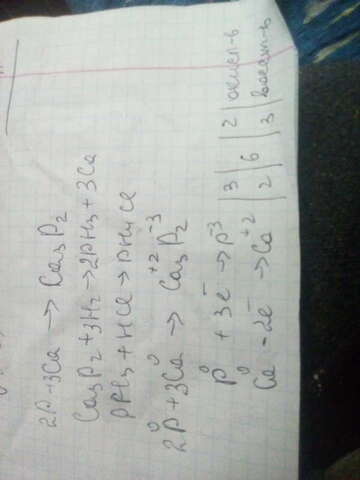 2P+3Ca → Ca₃P₂
Ca₃P₂ + 3H₂ → 2PH₃ + 3Ca
PH₃ + HCl → PH₄Cl
2P⁰ + 3Ca⁰ → Ca₃⁺²P₂⁻³
P⁰ + 3e⁻ → P⁻³ | 3 | 6 | 2 | окисл-ь
Ca⁰ - 2e⁻ → Ca⁺² | 2 | | 3 | восст-ь